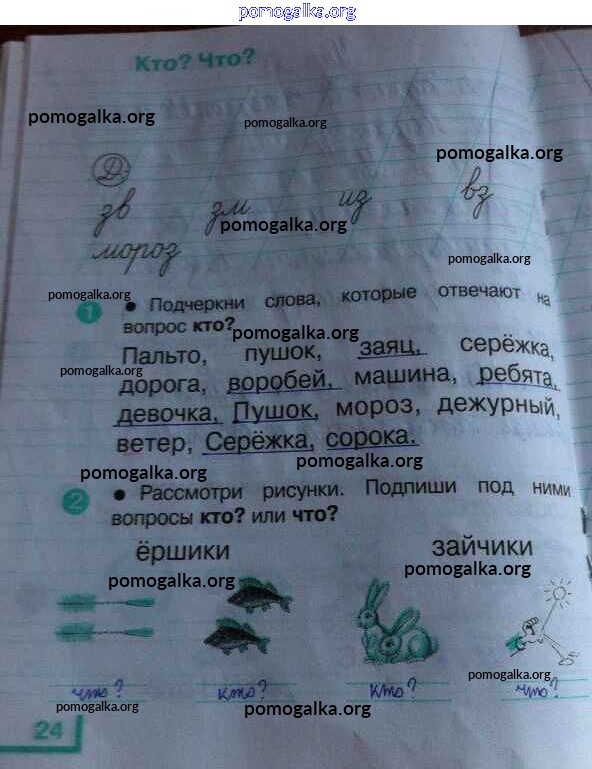 pomogalka.org
Кто? Что?
pomogalka.org
pomogalka.org
pomogalka.org
Д
зв зм из вз
pomogalka.org
мороз
pomogalka.org
pomogalka.org
1 • Подчеркни слова, которые отвечают на
вопрос кто?
pomogalka.org
Пальто, пушок, заяц, серёжка,
pomogalka.org
дорога, воробей, машина, ребята,
девочка, Пушок, мороз, дежурный,
ветер, Серёжка, сорока.
pomogalka.org
pomogalka.org
2 • Рассмотри рисунки. Подпиши под ними
вопросы кто? или что?
ёршики зайчики
pomogalka.org
pomogalka.org
pomogalka.org
что? кто? кто? что?
pomogalka.org
pomogalka.org
24